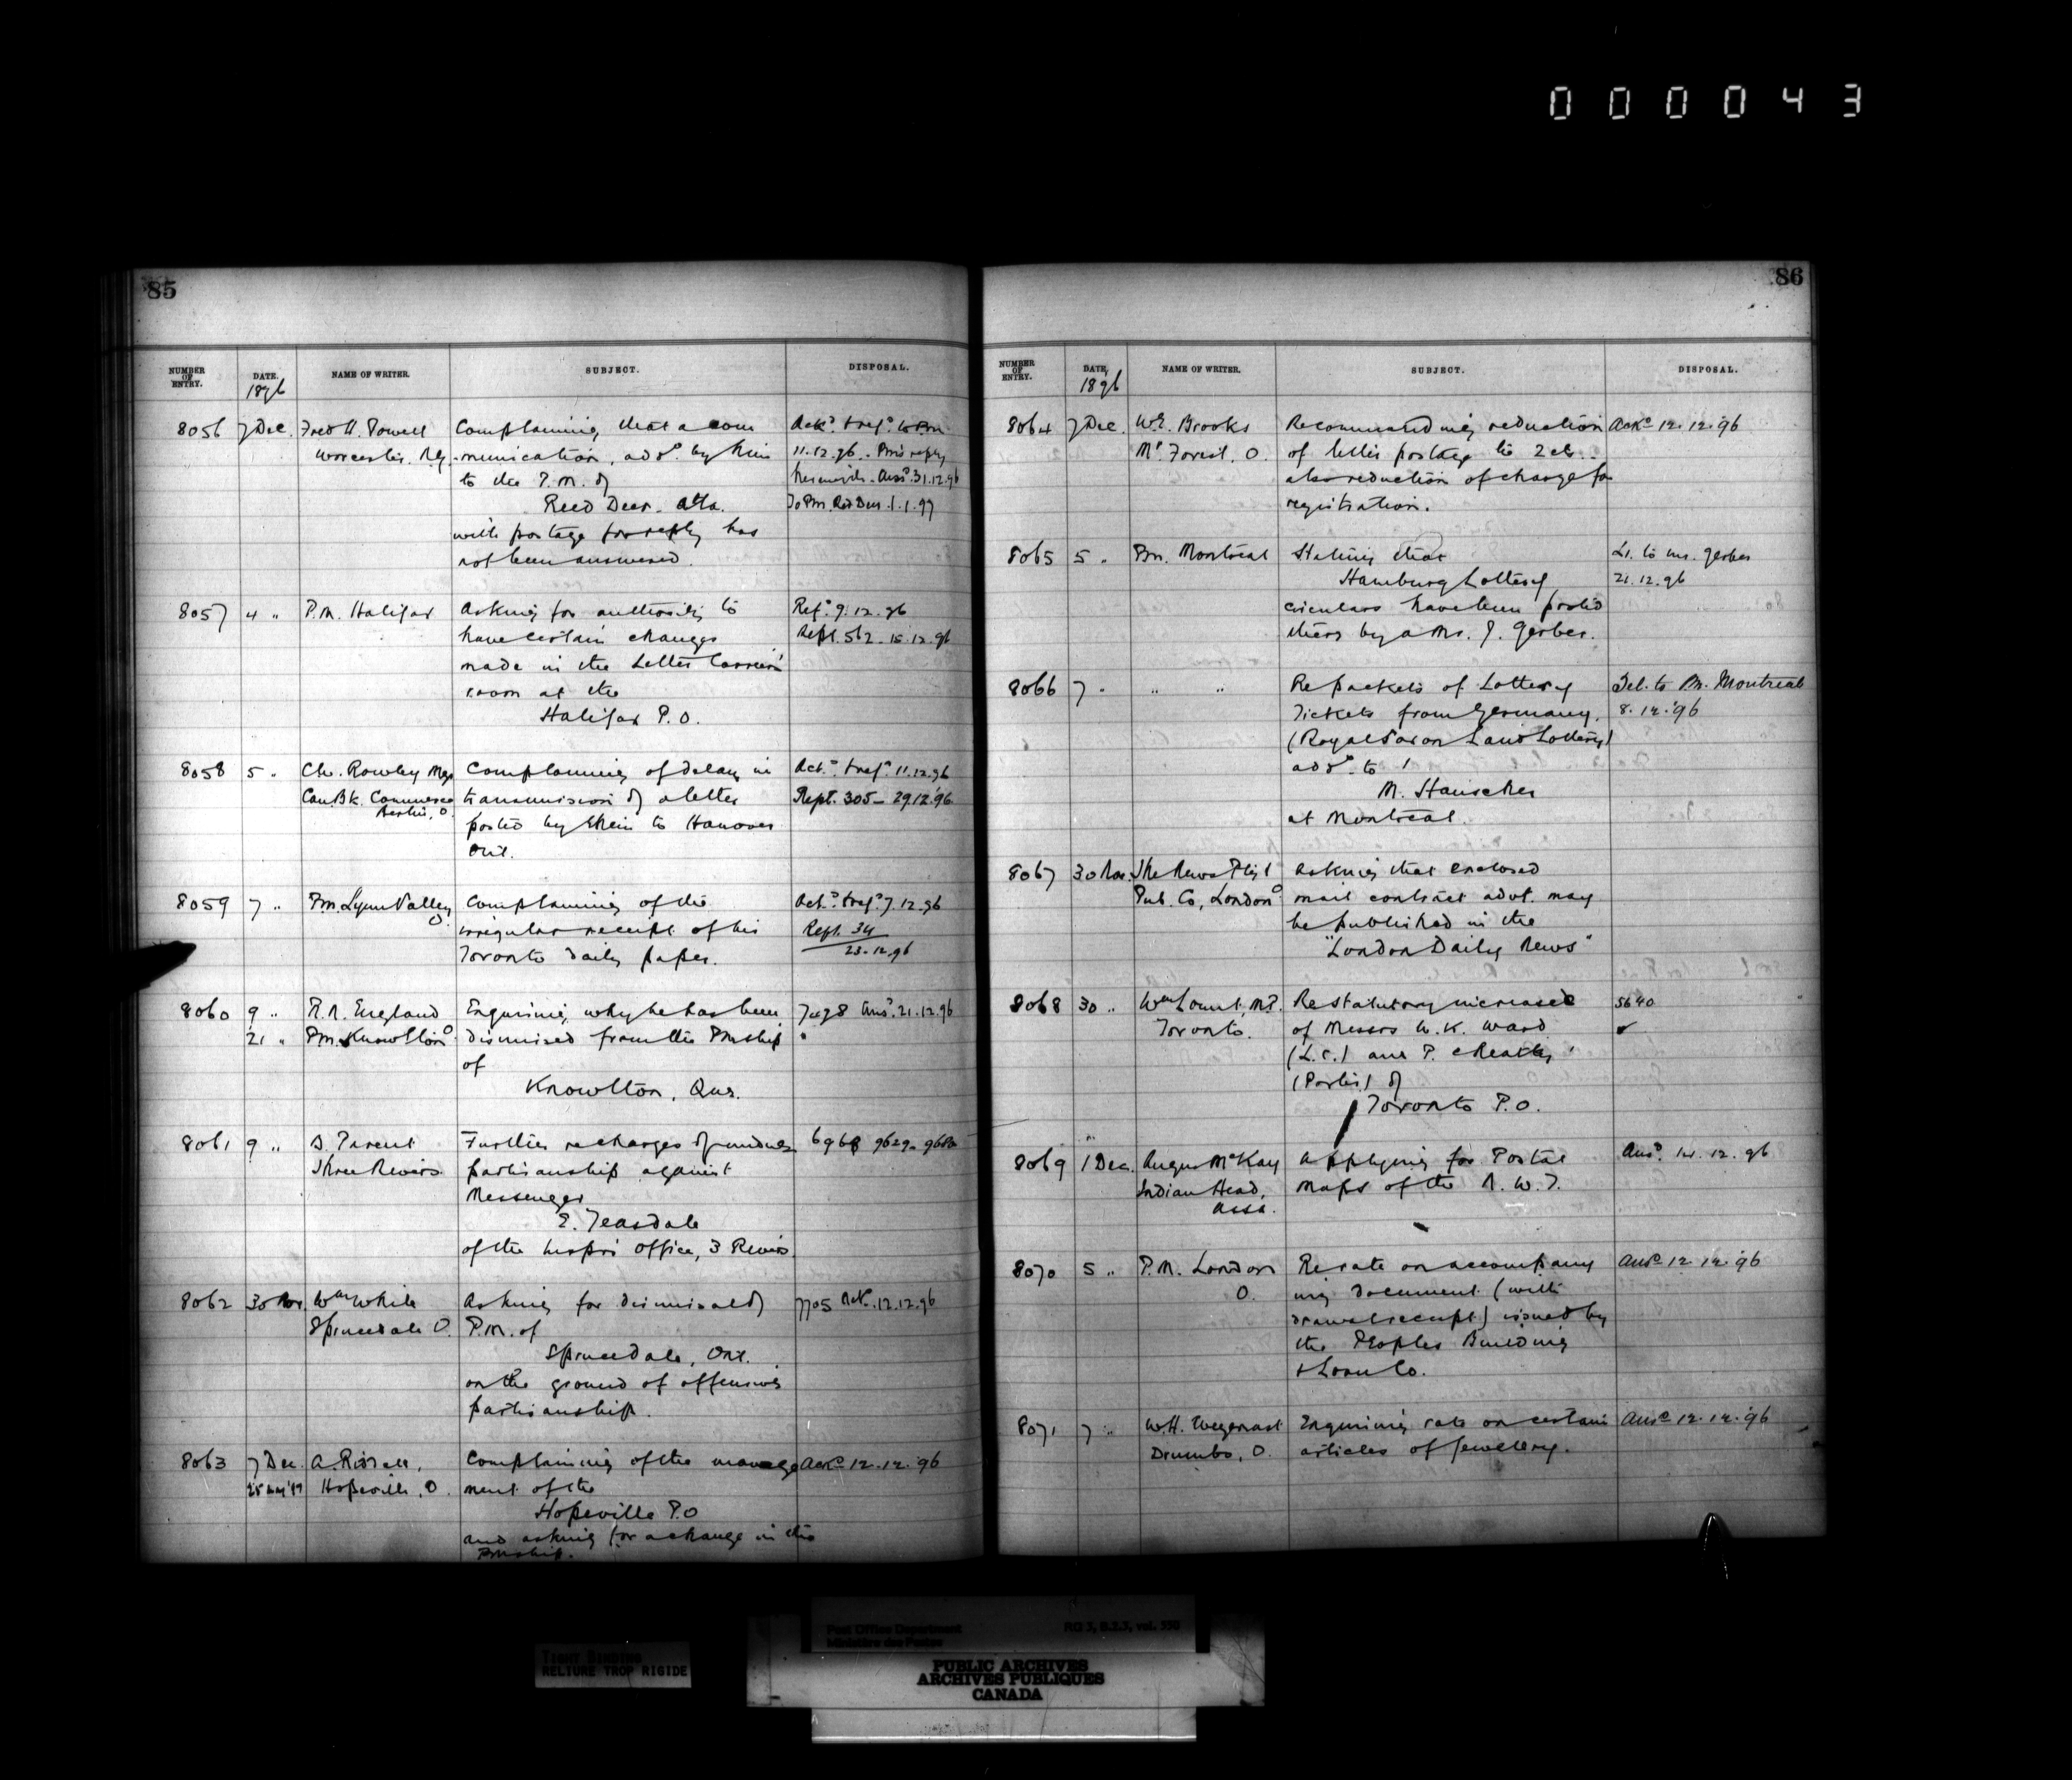 000043
85
NUMBER OF ENTRY. DATE. NAME OF WRITER. SUBJECT. DISPOSAL.
1896
8056 7 Dec. Fred H. Powell Complaining that a com Ack.d & ref.d to Pm
Worcester. munication, add.d by him 11.12.96. Pm's reply
to the P.M. of herewith. Ans.d 31.12.96
Reed Deer. Alta. To Pm. Red Deer. 1.1.97
with postage for reply has
not been answered.
8057 4 " P.M. Halifax Asking for authority to Ref.d 9.12.96
have certain changes Rept. 562. 15.12.96
made in the Letter Carriers'
room at the
Halifax P.O.
8058 5 " Ch. Rowley Mgr Complaining of delay in Ack.d & ref.d 11.12.96
Can. Bk. Commerce transmission of a letter Rept. 305 - 29.12.96
Berlin, O. posted by them to Hanover
Ont.
8059 7 " Pm. Lynn Valley Complaining of the Ack.d & ref.d 7.12.96
O irregular receipt of his Rept. 34
Toronto daily paper. 23.12.96
8060 9 " R.N. England Enquiring why he has been 7498 Ans.d 21.12.96
21 " Pm. Knowlton dismissed from the Pmship "
of
Knowlton, Que.
8061 9 " D. Parent Further re charges of undue 6968 9629
Three Rivers. partisanship against
Messenger
E. Teasdale
of the Inspr's Office, 3 Rivers.
8062 30 Nov. Wm White Asking for dismissal of 7705 Ack. 12.12.96
Sprucedale O. P.M. of
Sprucedale, Ont.
on the ground of offensive
partisanship.
8063 7 Dec. A. Complaining of the manage Ack.d 12.12.96
Hopeville, O. ment of the
Hopeville P.O
and asking for a change in the
Pmship.
86
NUMBER OF ENTRY. DATE. NAME OF WRITER. SUBJECT. DISPOSAL.
1896
8064 7 Dec. W.E. Brooks Recommending reduction Ack.d 12.12.96
Mt Forest, O. of letter postage to 2 cts.
also reduction of charge for
registration.
8065 5 " Pm. Montreal Stating that Lr. to Mr. Gerber
Hamburg Lottery 21.12.96
circulars have been posted
there by a Mr. J. Gerber.
8066 7 " " " Re packets of Lottery Tel. to Pm. Montreal
Tickets from Germany, 8.12.96
(Royal Saxon Land Lottery)
add.d to
M. Hauscher
at Montreal.
8067 30 Nov. The News Ptg & Asking that enclosed
Pub. Co, London O mail contract advt. may
be published in the
"London Daily News"
8068 30 " Wm Lount, M.P. Re statutory increases 5640
Toronto. of Messrs W. K. Ward
(L.C.) and P.
(Porter) of
Toronto P.O.
8069 1 Dec. Angus McKay Applying for Postal Ans.d 14.12.96
Indian Head, Maps of the N.W.T.
Assa.
8070 5 " P.M. London Re rate on accompany Ans.d 12.12.96
O. ing document (with
drawal receipt) issued by
the Peoples Building
& Loan Co.
8071 7 " W.H. Wegenast Enquiring rate on certain Ans.d 12.12.96
Drumbo, O. articles of jewellery.
TIGHT BINDING
RELIURE TROP RIGIDE
Post Office Department RG 3, B.2.3, vol. 550
Ministère des Postes
PUBLIC ARCHIVES
ARCHIVES PUBLIQUES
CANADA